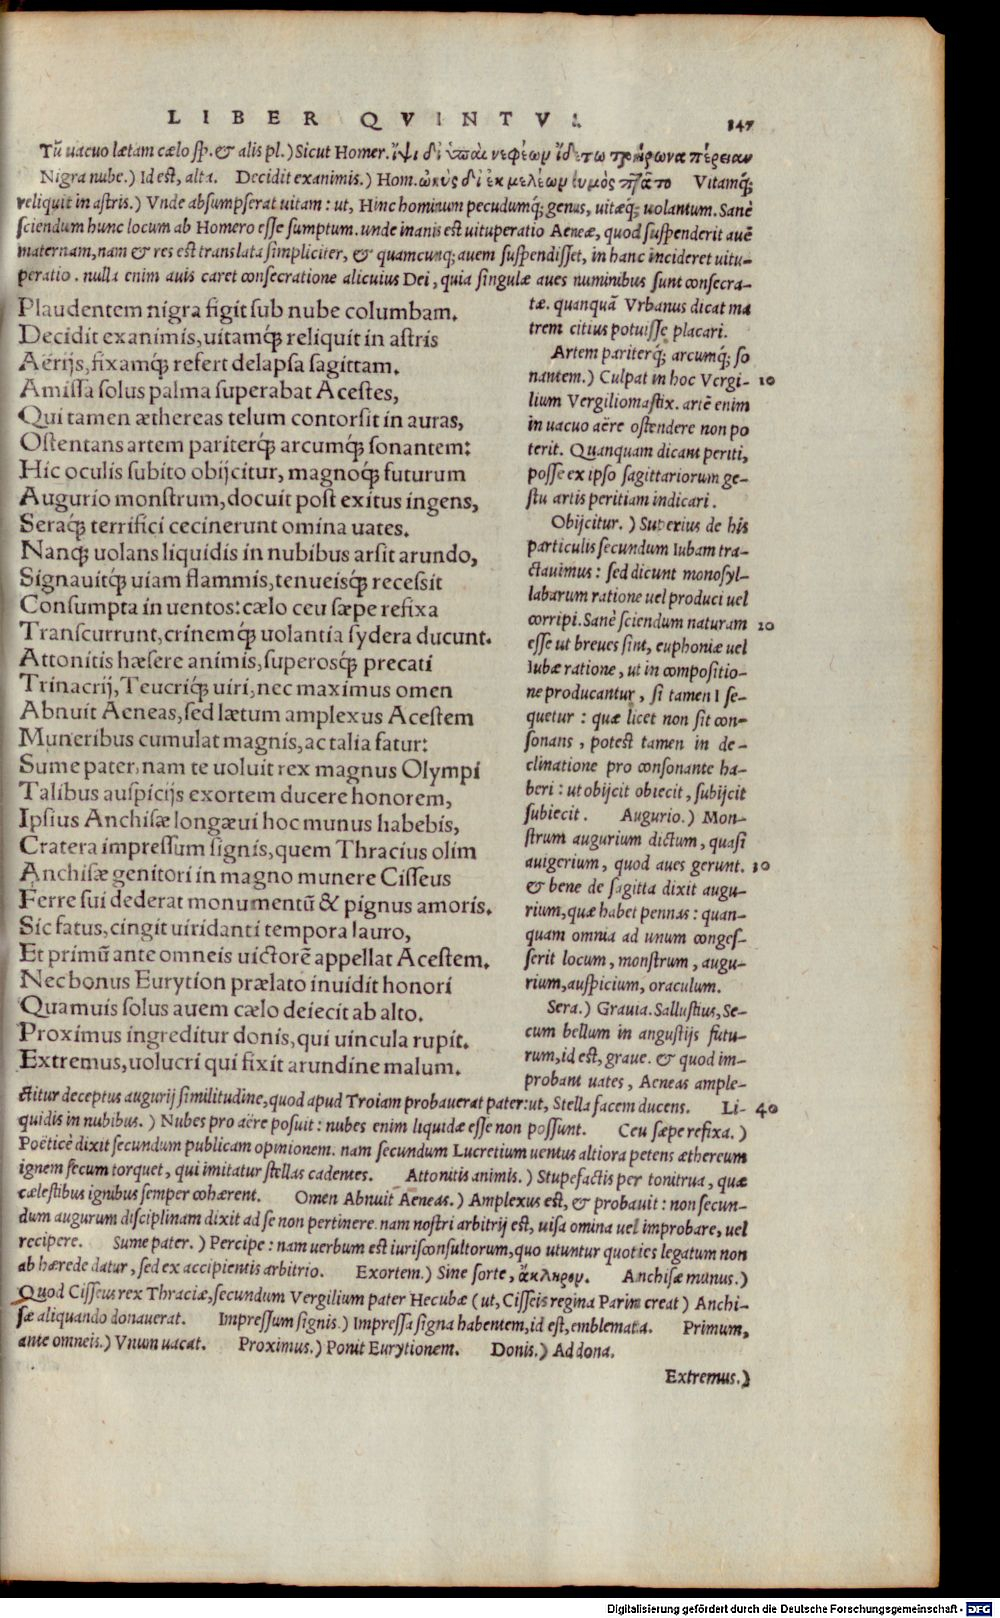 LIBER QVINTVS
147
Tũ uacuo lætam cælo sp. & alis pl.) Sicut Homer. ὕψι δ᾽ ὑπαὶ νεφέων ἴδετο τρήρωνα πέλειαν
Nigra nube.) Id est, alta. Decidit exanimis.) Hom. ὠκὺς δ᾽ ἐκ μελέων θυμὸς πτᾶτο Vitamq́;
reliquit in astris.) Vnde absumpserat uitam: ut, Hinc hominum pecudumq́; genus, uitæq́; uolantum. Sanè
sciendum hunc locum ab Homero esse sumptum. unde inanis est uituperatio Aeneæ, quod suspenderit auẽ
maternam, nam & res est translata simpliciter, & quamcunq; auem suspendisset, in hanc incideret uitu-
peratio. nulla enim auis caret consecratione alicuius Dei, quia singulæ aues numinibus sunt consecra-
Plaudentem nigra figit sub nube columbam.
Decidit exanimis, uitamq́; reliquit in astris
Aërijs, fixamq́; refert delapsa sagittam.
Amissa solus palma superabat Acestes,
Qui tamen æthereas telum contorsit in auras,
Ostentans artem pariterq́; arcumq́; sonantem:
Hic oculis subito obijcitur, magnoq́; futurum
Augurio monstrum, docuit post exitus ingens,
Seraq́; terrifici cecinerunt omina uates.
Nanq; uolans liquidis in nubibus arsit arundo,
Signauitq́; uiam flammis, tenueisq́; recessit
Consumpta in uentos: cælo ceu sæpe refixa
Transcurrunt, crinemq́; uolantia sydera ducunt.
Attonitis hæsere animis, superosq́; precati
Trinacrij, Teucriq́; uiri, nec maximus omen
Abnuit Aeneas, sed lætum amplexus Acestem
Muneribus cumulat magnis, ac talia fatur:
Sume pater, nam te uoluit rex magnus Olympi
Talibus auspicijs exortem ducere honorem,
Ipsius Anchisæ longæui hoc munus habebis,
Cratera impressum signis, quem Thracius olim
Anchisæ genitori in magno munere Cisseus
Ferre sui dederat monumentũ & pignus amoris.
Sic fatus, cingit uiridanti tempora lauro,
Et primũ ante omneis uictorẽ appellat Acestem.
Nec bonus Eurytion prælato inuidit honori
Quamuis solus auem cælo deiecit ab alto.
Proximus ingreditur donis, qui uincula rupit.
Extremus, uolucri qui fixit arundine malum.
tæ. quanquã Vrbanus dicat ma
trem citius potuisse placari.
Artem pariterq́; arcumq́; so
nantem.) Culpat in hoc Vergi- 10
lium Vergiliomastix. artẽ enim
in uacuo aëre ostendere non po
terit. Quanquam dicant periti,
posse ex ipso sagittariorum ge-
stu artis peritiam indicari.
Obijcitur.) Superius de his
particulis secundum Iubam tra-
ctauimus: sed dicunt monosyl-
labarum ratione uel produci uel
corripi. Sanè sciendum naturam 20
esse ut breues sint, euphoniæ uel
Iubæ ratione, ut in compositio-
ne producantur, si tamen I se-
quetur: quæ licet non sit con-
sonans, potest tamen in de-
clinatione pro consonante ha-
beri: ut obijcit obiecit, subijcit
subiecit. Augurio.) Mon-
strum augurium dictum, quasi
auigerium, quod aues gerunt. 30
& bene de sagitta dixit augu-
rium, quæ habet pennas: quan-
quam omnia ad unum conges-
serit locum, monstrum, augu-
rium, auspicium, oraculum.
Sera.) Grauia. Sallustius, Se-
cum bellum in angustijs futu-
rum, id est, graue. & quod im-
probant uates, Aeneas ample-
ctitur deceptus augurij similitudine, quod apud Troiam probauerat pater: ut, Stella facem ducens. Li- 40
quidis in nubibus.) Nubes pro aëre posuit: nubes enim liquidæ esse non possunt. Ceu sæpe refixa.)
Poëticè dixit secundum publicam opinionem. nam secundum Lucretium uentus altiora petens æthereum
ignem secum torquet, qui imitatur stellas cadentes. Attonitis animis.) Stupefactis per tonitrua, quæ
cælestibus ignibus semper cohærent. Omen Abnuit Aeneas.) Amplexus est, & probauit: non secun-
dum augurum disciplinam dixit ad se non pertinere. nam nostri arbitrij est, uisa omina uel improbare, uel
recipere. Sume pater.) Percipe: nam uerbum est iurisconsultorum, quo utuntur quoties legatum non
ab hærede datur, sed ex accipientis arbitrio. Exortem.) Sine sorte, ἄκληρον. Anchisæ munus.)
Quod Cisseus rex Thraciæ, secundum Vergilium pater Hecubæ (ut, Cisseis regina Parin creat) Anchi-
sæ aliquando donauerat. Impressum signis.) Impressa signa habentem, id est, emblemata. Primum,
ante omneis.) Vnum uacat. Proximus.) Ponit Eurytionem. Donis.) Ad dona.
Extremus.)
Digitalisierung gefördert durch die Deutsche Forschungsgemeinschaft - DFG